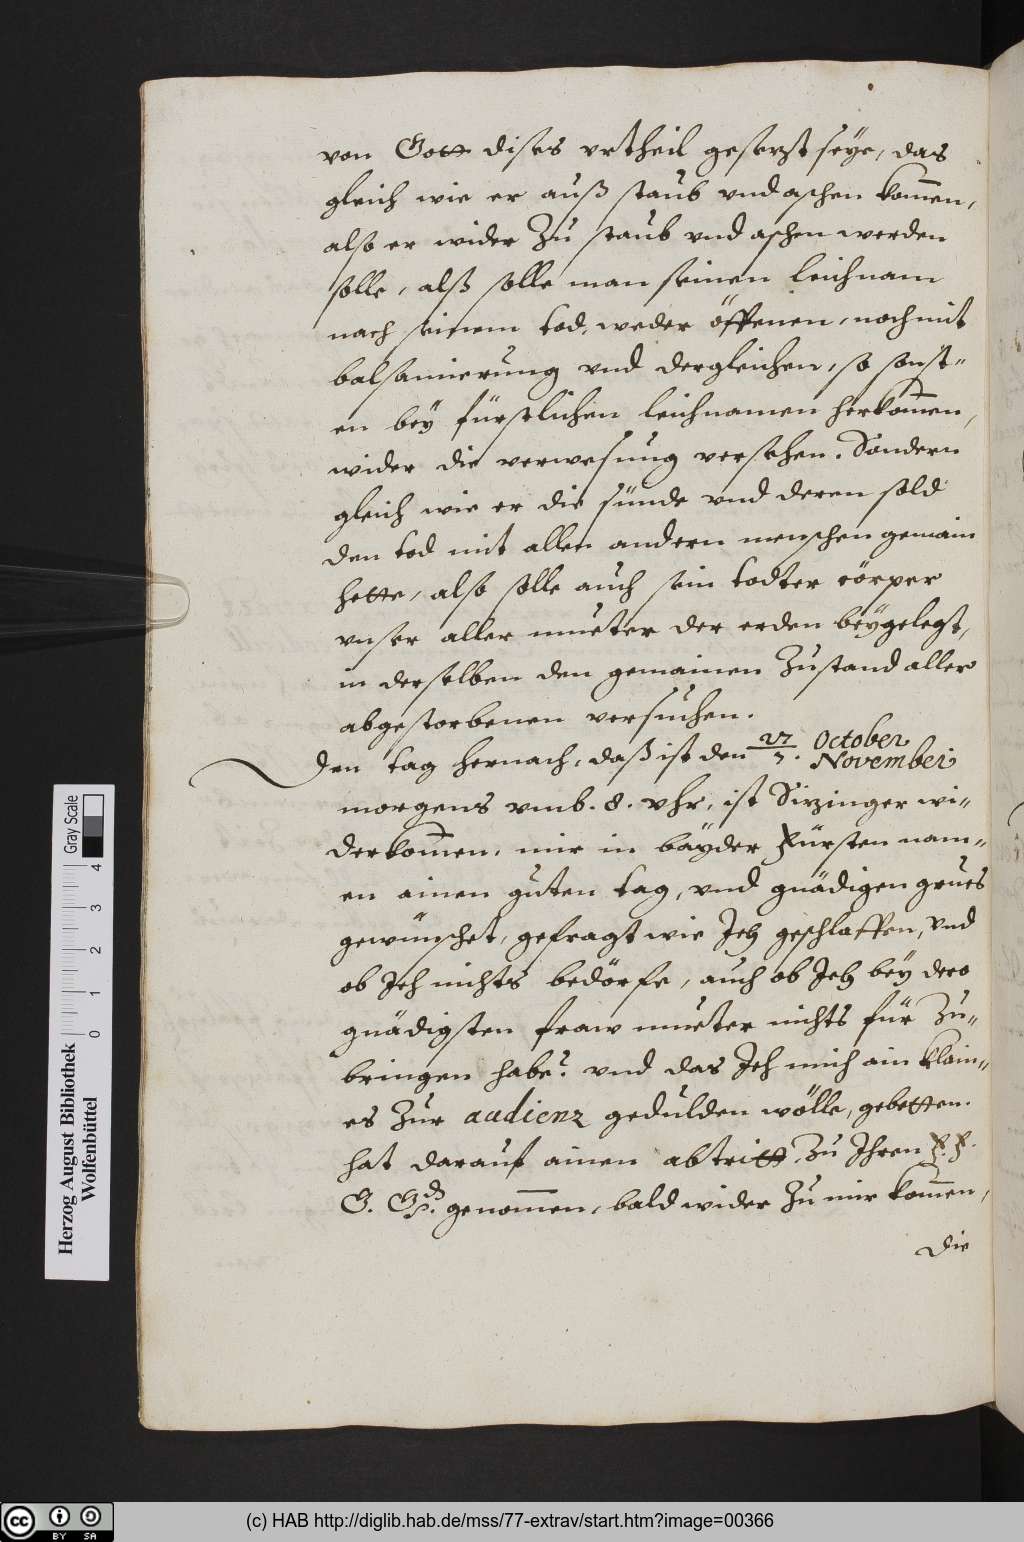 von Gott dises vrtheil gesetzt seye, das
gleich wie er auß staub vnd aschen kom̄en,
also er wider Zu staub vnd aschen werden
solle, alß solle man seinen leichnam
nach seinem tod, weder öffenen, noch mit
balsamierung vnd dergleichen, so sonst-
en beÿ fürstlichen leichnamen herkom̄en,
wider die verwesung versehen. Sondern
gleich wie er die sünde vnd deren sold
den tod mit allen andern menschen gemain
hette, also solle auch sein todter cörper
vnser aller mueter der erden beÿgelegt,
in derselben den gemainen Zustand aller
abgestorbenen versuchen.
Den tag hernach, daß ist den 27/7. October/Novembei
morgens vmb. 8. vhr, ist Sirzinger wi-
derkom̄en, mir in bäyder Fürsten nam-
en ainen guten tag, vnd gnädigen grues
gewünschet, gefragt wie Jch geschlaffen, vnd
ob Jch nichts bedörfe, auch ob Jch beÿ dero
gnädigsten fraw mueter nichts für Zu-
bringen habe? vnd das Jch mich ain klain-
es Zur audienz gedulden wölle, gebetten.
hat darauf ainen abtritt, Zu Ihren F. F.
G. Gd. genom̄en, bald wider Zu mir kom̄en,
die
Herzog August Bibliothek
Wolfenbüttel
0 1 2 3 4
Gray Scale
cc BY SA
(c) HAB http://diglib.hab.de/mss/77-extrav/start.htm?image=00366